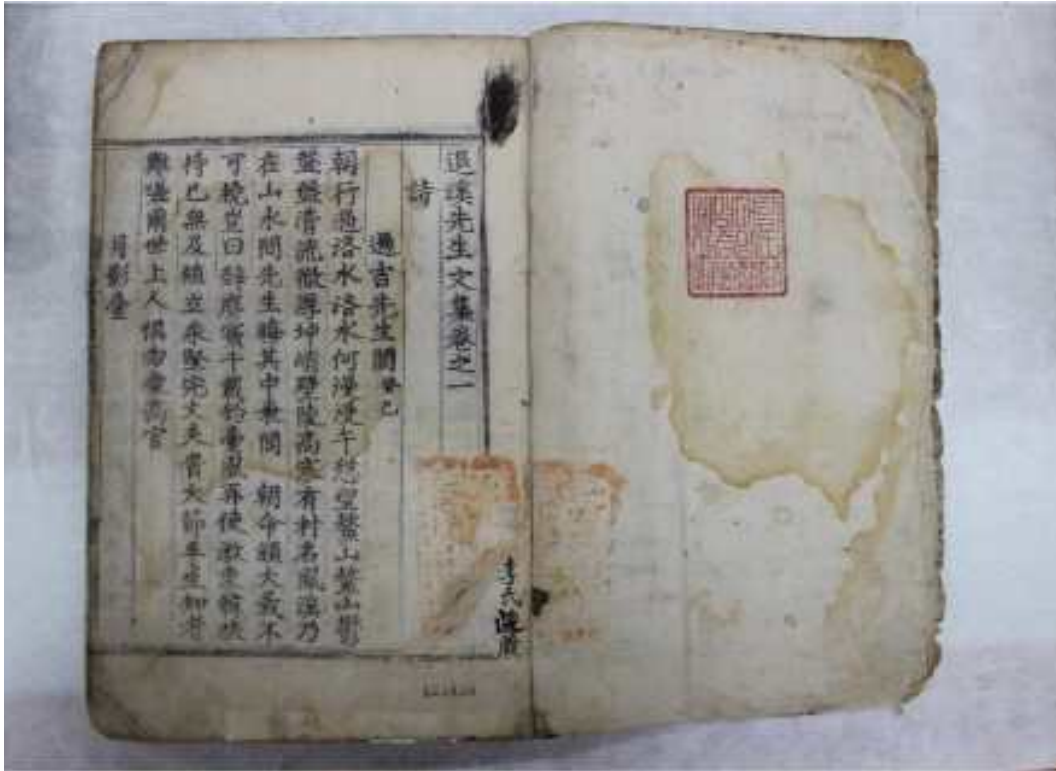 退溪先生文集卷之一
詩
過吉先生閭 癸巳
朝行過洛水洛水何漫漫午憩望鰲山鰲山鬱
盤盤清流徹厚坤峭壁凌高寒有村名鳳溪乃
在山水間先生晦其中表閭 朝命頒大義不
可撓豈曰辭塵寰千載釣臺風再使激東韓扶
持已無及植立永堅完丈夫貴大節平生知者
難嗟爾世上人愼勿愛高官
月影臺
李氏